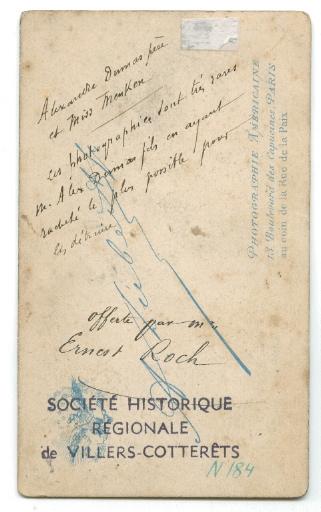 Alexandre Dumas père
et Miss Menken
Les photographies sont très rares
M. Alex Dumas fils en ayant
racheté le plus possible pour
les détruire
offerte par mr
Ernest Roch
SOCIÉTÉ HISTORIQUE
RÉGIONALE
de VILLERS-COTTERÊTS
N 184
PHOTOGRAPHIE AMÉRICAINE
13, Boulevard des Capucines, PARIS
au coin de la Rue de la Paix